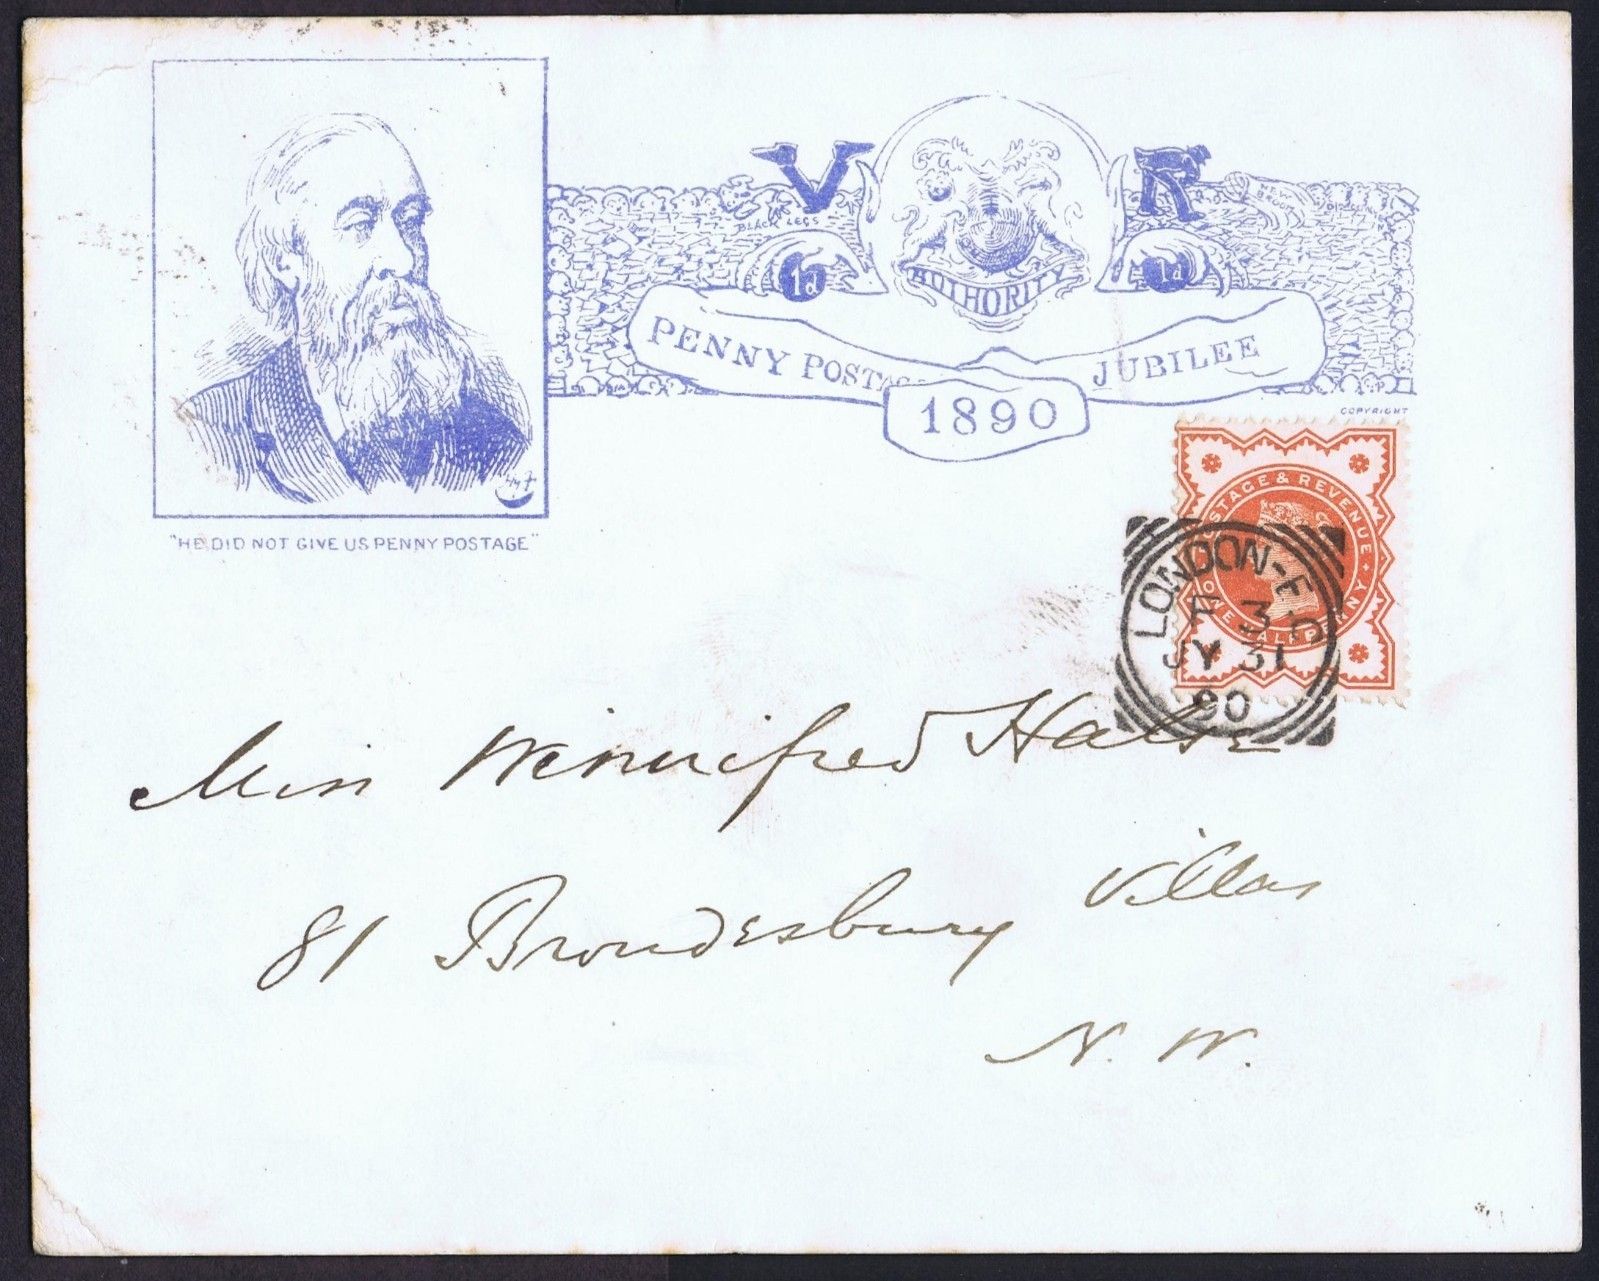 V R
BLACK LEGS
NEW BROOM
1d 1d
AUTHORITY
PENNY POSTAGE JUBILEE
1890
COPYRIGHT
"HE DID NOT GIVE US PENNY POSTAGE"
POSTAGE & REVENUE
ONE HALFPENNY
LONDON-E.C
F 3
JY 31
90
Miss Winnifred Halse
81 Brondesbury Villas
N. W.